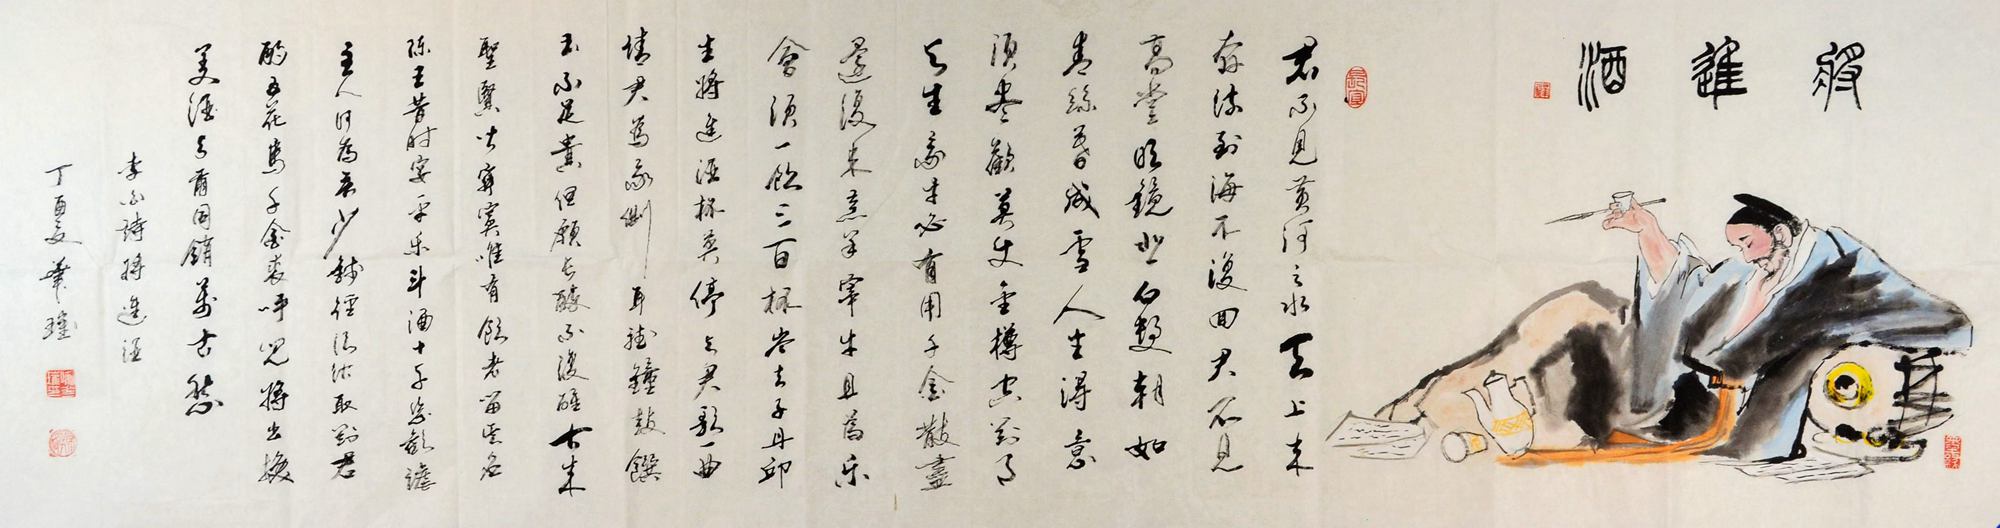 将進酒
君不見黄河之水天上来
奔流到海不復回君不見
高堂明鏡悲白髮朝如
青絲暮成雪人生得意
須尽歡莫使金樽空對月
天生我才必有用千金散盡
還復来烹羊宰牛且為乐
會須一飲三百杯岑夫子丹邱
生將進酒杯莫停與君歌一曲
請君為我側耳聽鐘鼓饌
玉不足貴但願長醉不復醒古来
聖賢皆寂寞唯有飲者留其名
陈王昔时宴平乐斗酒十千恣歡謔
主人何為言少錢徑須沽取對君
酌五花馬千金裘呼兒將出換
美酒與爾同銷萬古愁
李白詩將進酒
丁酉夏華